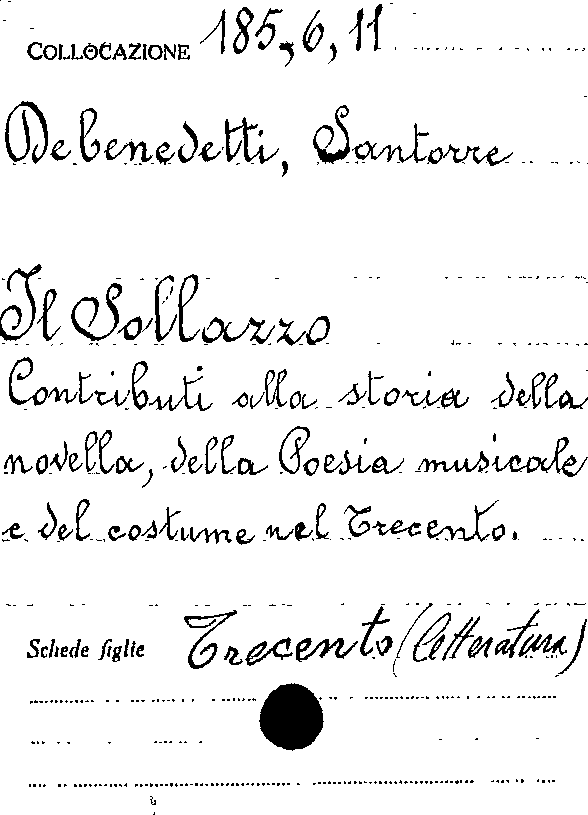 COLLOCAZIONE 185, 6, 11
Debenedetti, Santorre
Il Sollazzo
Contributi alla storia della
novella, della Poesia musicale
e del costume nel Trecento.
Schede figlie Trecento (letteratura)